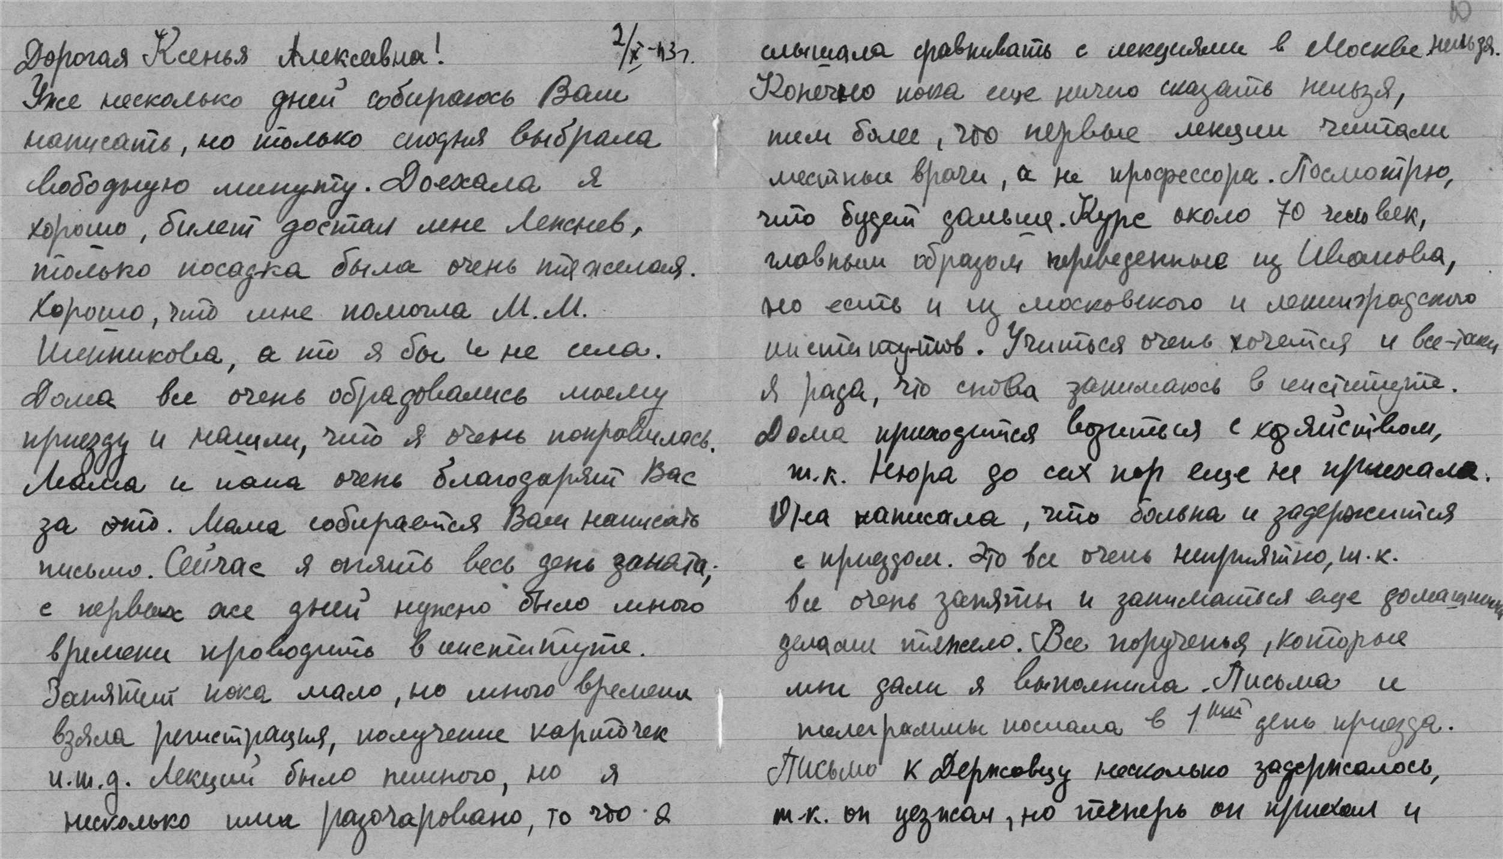 Дорогая Ксенья Алексевна! 2/XI-43г.
Уже несколько дней собираюсь Вам
написать, но только сегодня выбрала
свободную минуту. Доехала я
хорошо, билет достал мне Лекснев,
только посадка была очень тяжелая.
Хорошо, что мне помогла М.М.
Шенникова, а то я бы и не села.
Дома все очень обрадовались моему
приезду и нашли, что я очень поправилась.
Мама и папа очень благодарят Вас
за это. Мама собирается Вам написать
письмо. Сейчас я опять весь день занята,
с первых же дней нужно было много
времени проводить в институте.
Занятий пока мало, но много времени
взяла регистрация, получение карточек
и.т.д. Лекций было немного, но я
несколько ими разочарована, то что я
слышала сравнивать с лекциями в Москве нельзя.
Конечно пока еще ничего сказать нельзя,
тем более, что первые лекции читали
местные врачи, а не профессора. Посмотрю,
что будет дальше. Курс около 70 человек,
главным образом переведенные из Иванова,
но есть и из московского и ленинградского
институтов. Учиться очень хочется и все-таки
я рада, что снова занимаюсь в институте.
Дома приходится возиться с хозяйством,
т.к. Нюра до сих пор еще не приехала.
Она написала, что больна и задержится
с приездом. Это все очень неприятно, т.к.
все очень заняты и заниматься еще домашними
делами тяжело. Все порученья, которые
мне дали я выполнила. Письма и
телеграммы послала в 1ый день приезда.
Письмо к Держовцу несколько задержалось,
т.к. он уезжал, но теперь он приехал и